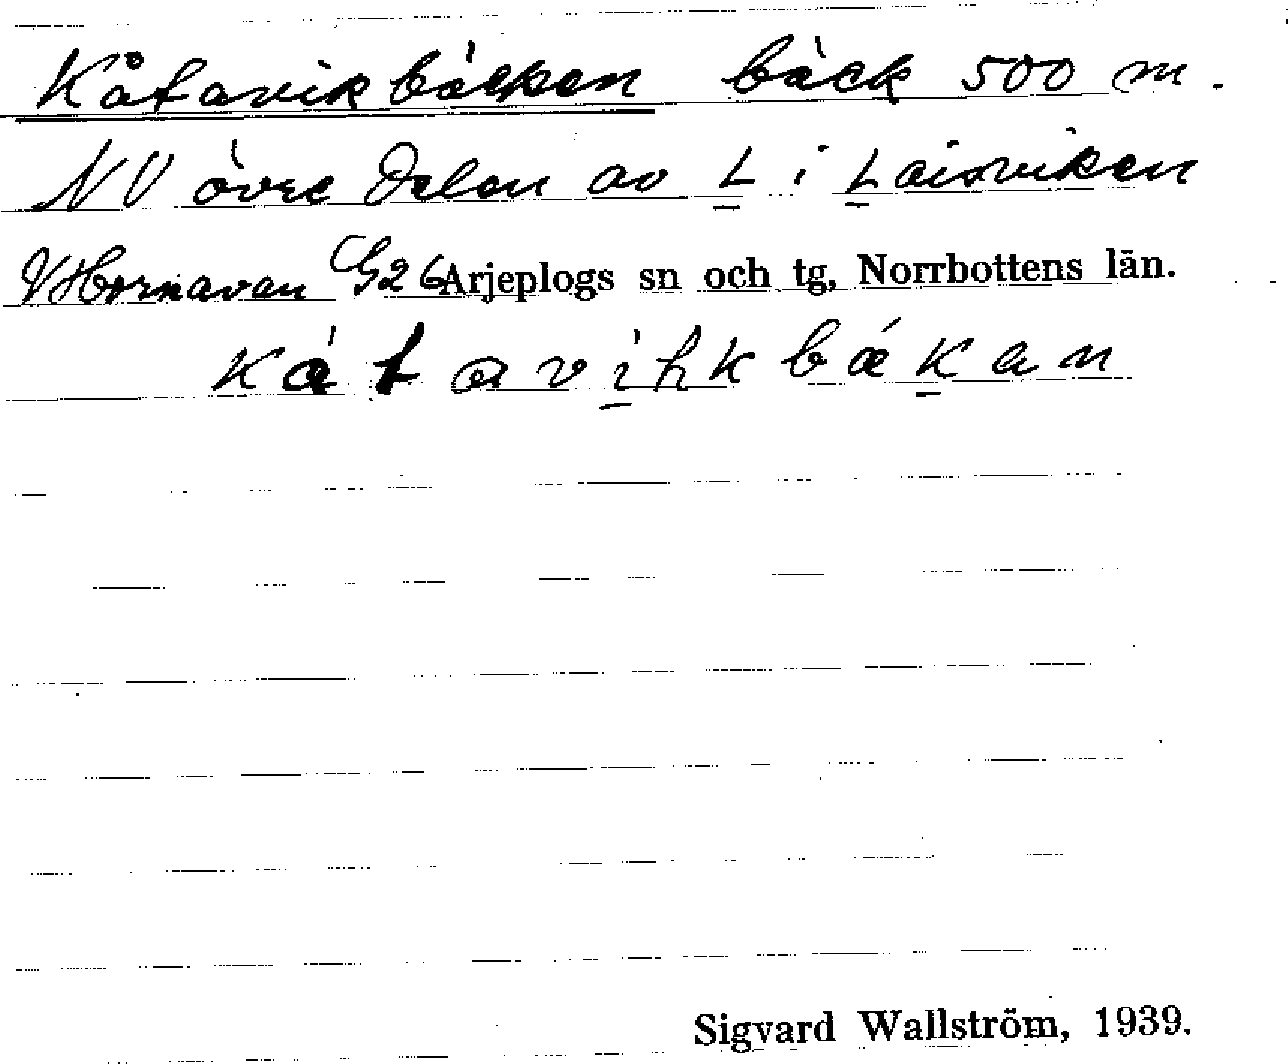 Kåtavikbäcken bäck 500 m.
NV övre delen av L i Laisviken
V Hornavan G26 Arjeplogs sn och tg, Norrbottens län.
kåtavihkbäkan
Sigvard Wallström, 1939.